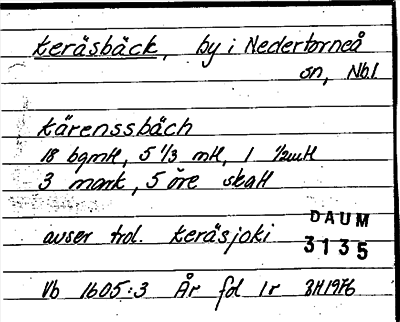 Keräsbäck, by i Nedertorneå
sn, Nbl
Kärenssbäch
18 bgmH, 5 1/3 mH, 1 1/2mH
3 mark, 5 öre skatt
avser trol. Keräsjoki
DAUM
3135
Vb 1605:3 År fol 1r BH1976